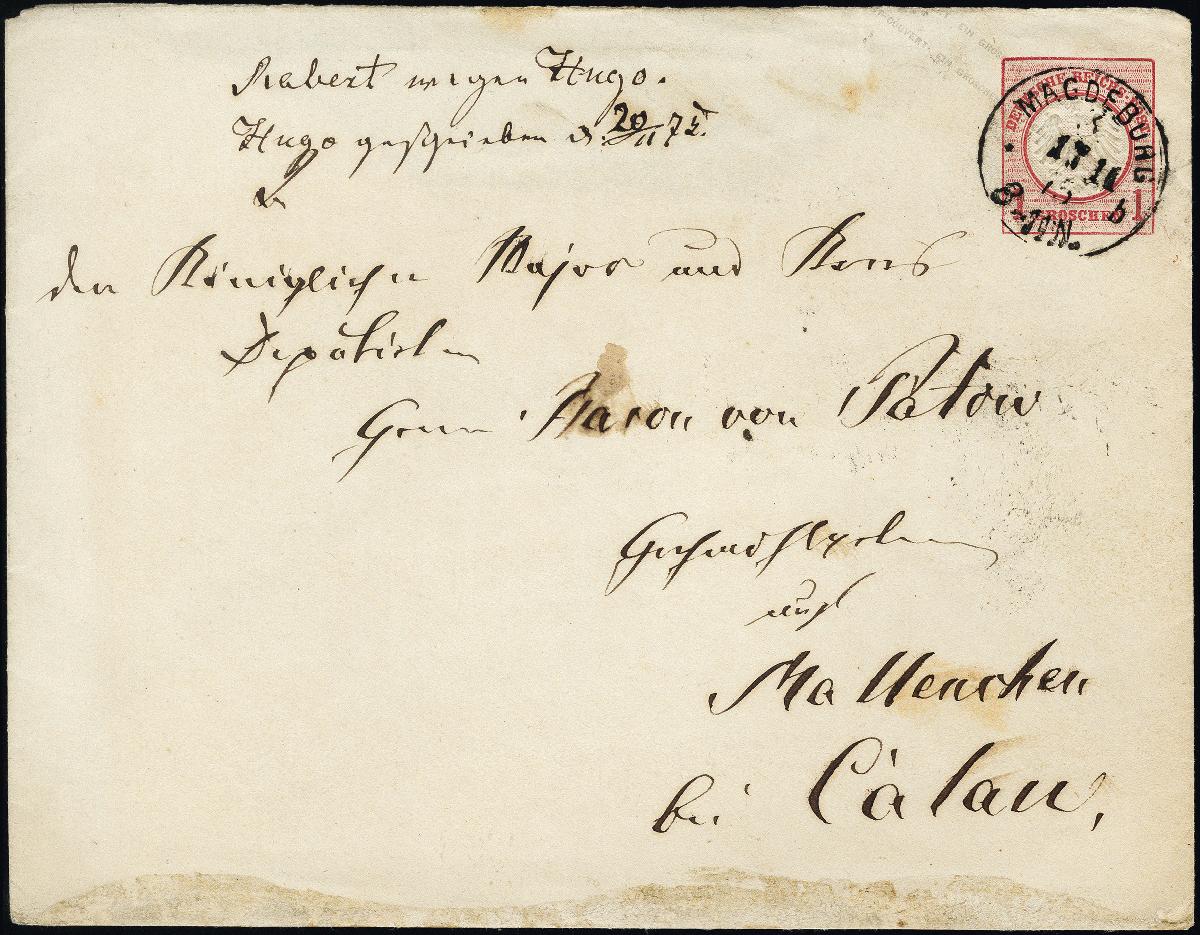 Robert wegen Hugo.
Hugo geschrieben d. 20/11 75.
DEUTSCHE REICHS-POST
1 GROSCHEN 1
MAGDEBURG
B-HN.
den Königlichen Major und Kreis
Deputirten
Herrn Baron von Patow
Hochwohlgeboren
auf
Mallenchen
bei Calau,